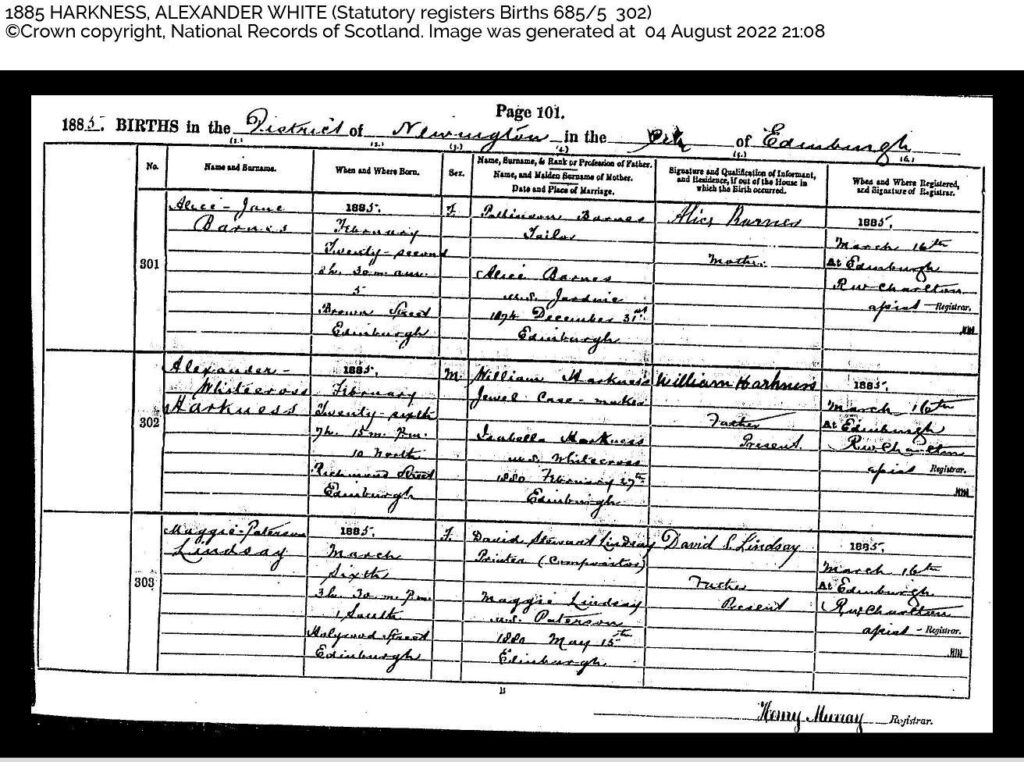 1885 HARKNESS, ALEXANDER WHITE (Statutory registers Births 685/5 302)
©Crown copyright, National Records of Scotland. Image was generated at 04 August 2022 21:08
Page 101.
1885. BIRTHS in the District of Newington in the City of Edinburgh
(1.) (2.) (3.) (4.) (5.) (6.)
No.
Name and Surname.
When and Where Born.
Sex.
Name, Surname, & Rank or Profession of Father.
Name, and Maiden Surname of Mother.
Date and Place of Marriage.
Signature and Qualification of Informant,
and Residence, if out of the House in
which the Birth occurred.
When and Where Registered,
and Signature of Registrar.
301
Alice-Jane
Barnes
1885.
February
Twenty-second
3h. 30m. a.m.
5
Brown Street
Edinburgh
F.
Barnes
Tailor
Alice Barnes
m.s. Jardine
1874 December 31st
Edinburgh
Alice Barnes
Mother.
1885.
March 16th
At Edinburgh
RW Charlton
assist Registrar.
HM
302
Alexander-
Whitecross
Harkness
1885.
February
Twenty-sixth
7h. 15m. P.m.
10 North
Richmond Street
Edinburgh
M.
William Harkness
Jewel Case-maker
Isabella Harkness
m.s. Whitecross
1880 February 27th
Edinburgh
William Harkness
Father
Present.
1885.
March 16th
At Edinburgh
RW Charlton
assist Registrar.
HM
303
Maggie-Paterson
Lindsay
1885.
March
Sixth
3h. 30m. P.m.
1 South
Street
Edinburgh
F.
David Steward Lindsay
Printer (Compositor)
Maggie Lindsay
m.s. Paterson
1880 May 15th
Edinburgh
David S. Lindsay
Father
Present
1885.
March 16th
At Edinburgh
RW Charlton
assist Registrar.
HM
Henry Murray Registrar.